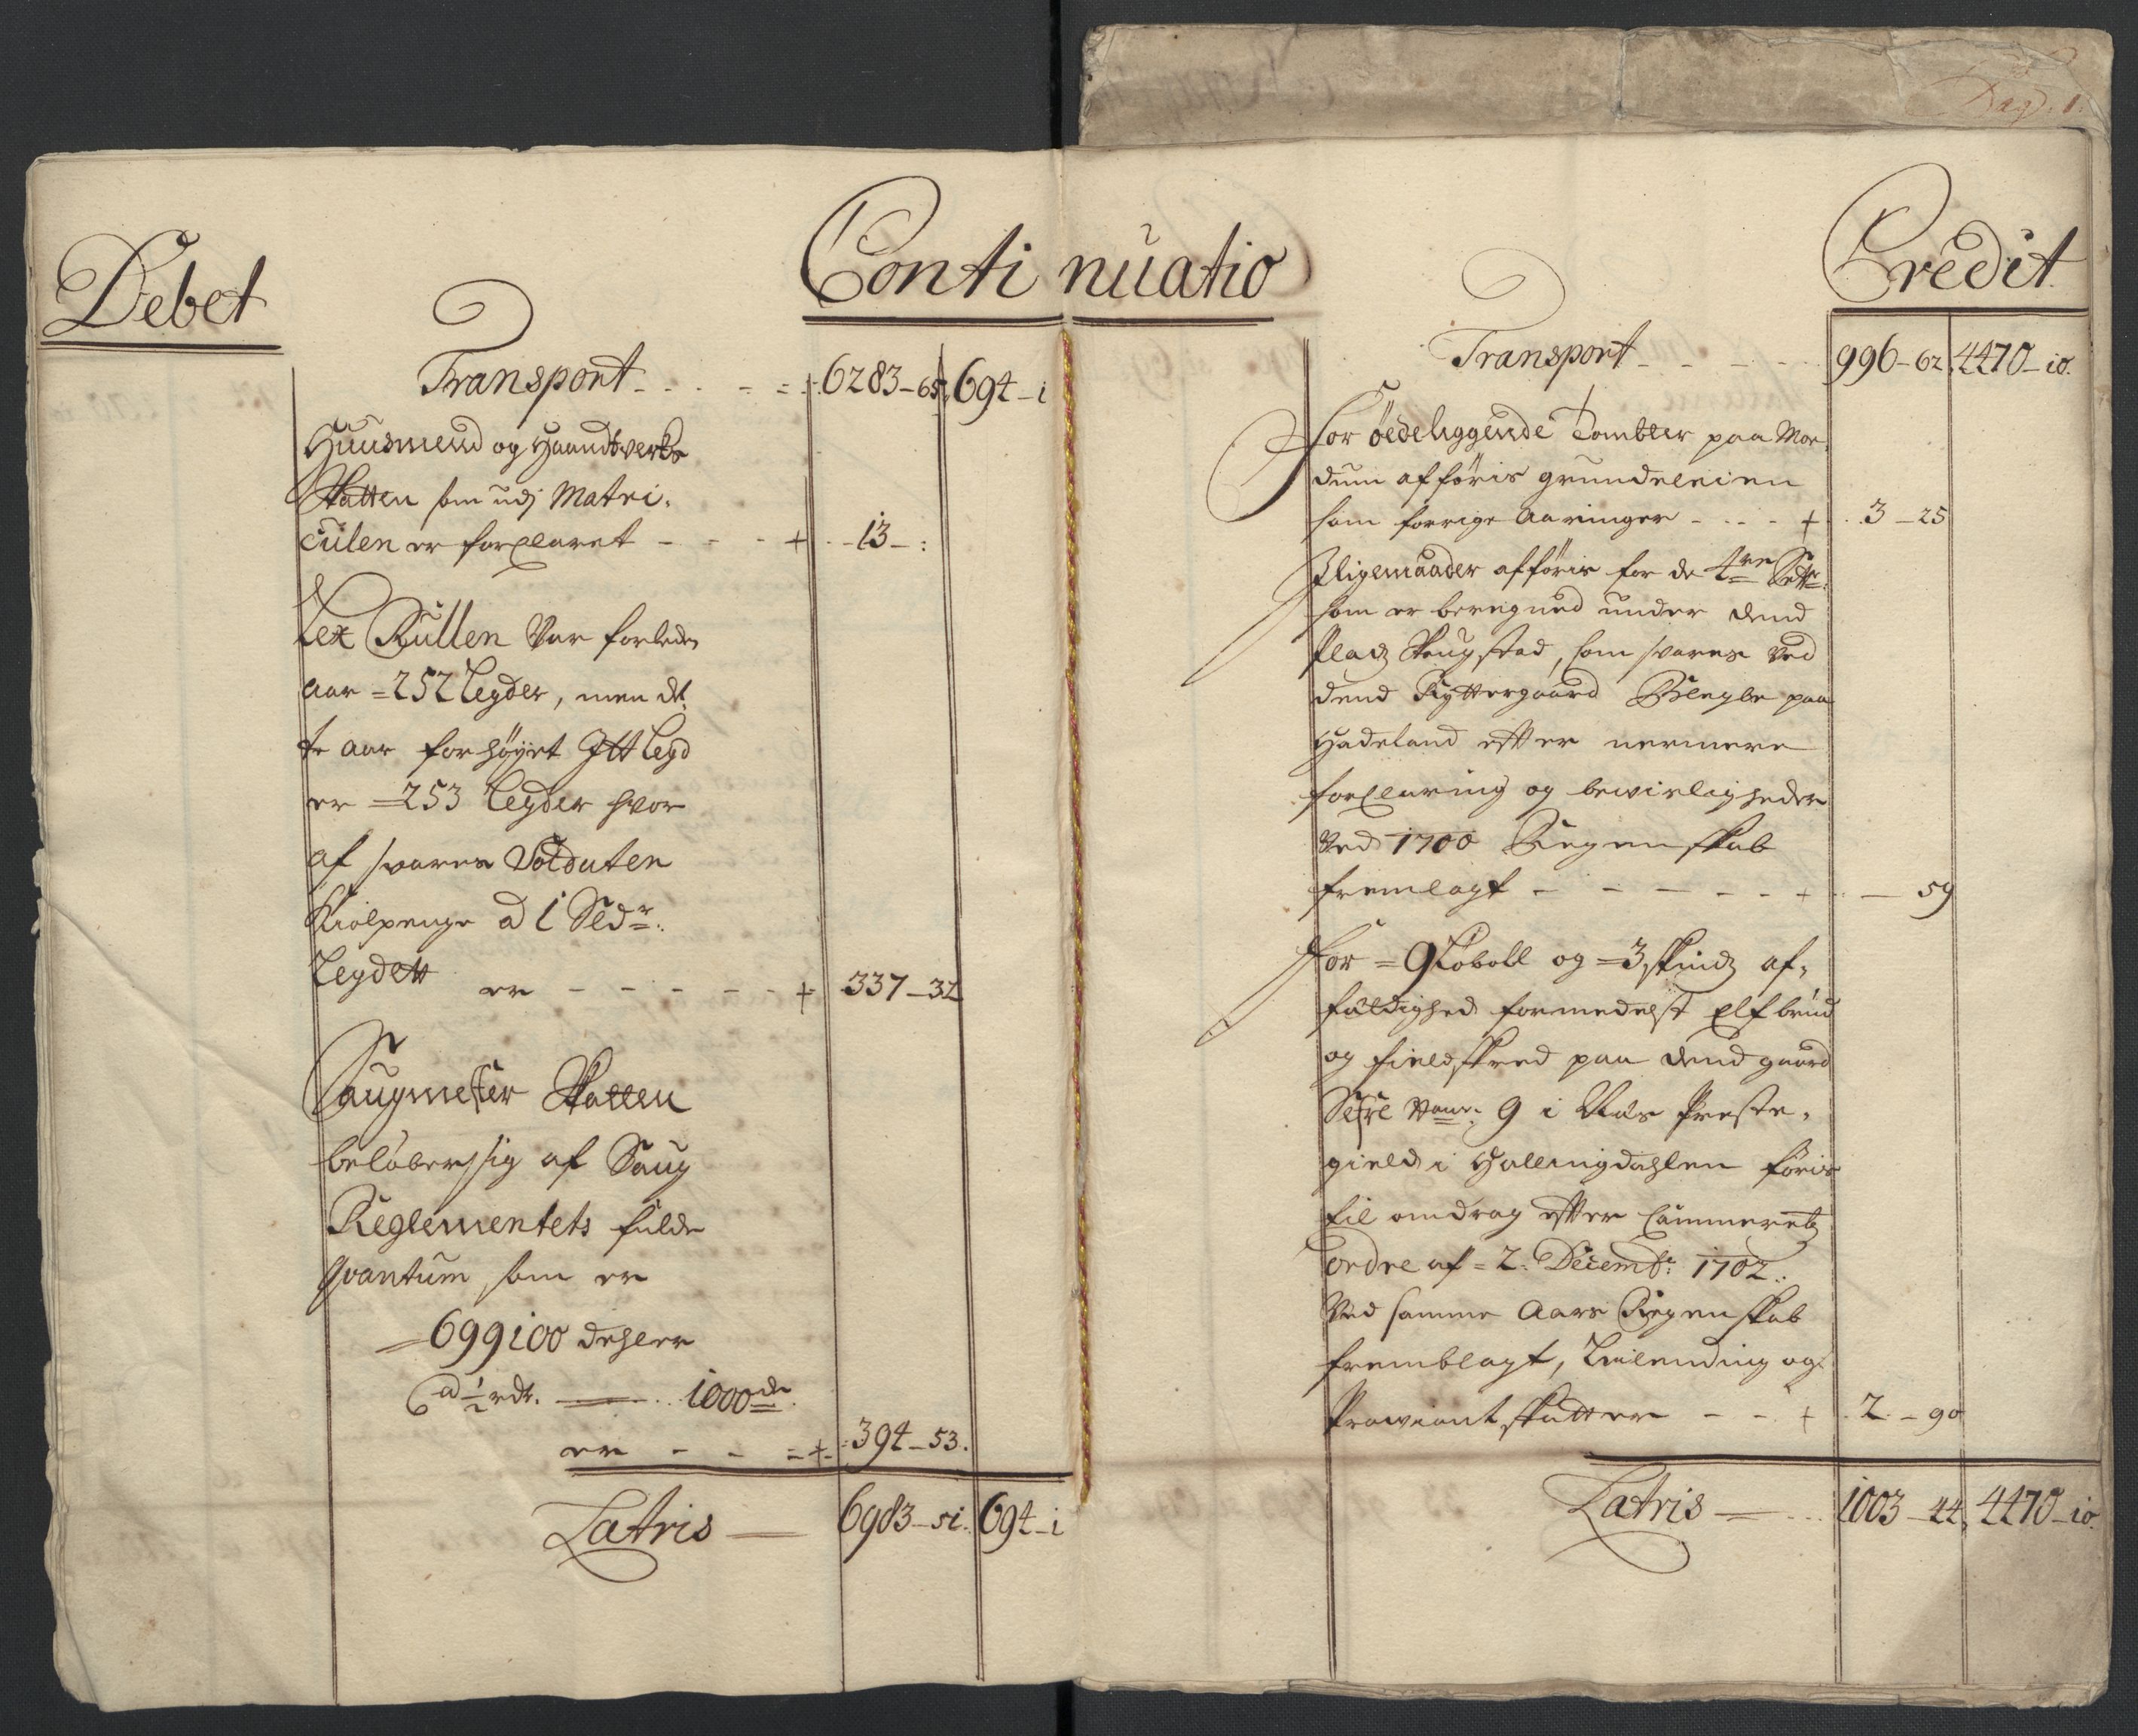 Debet
Continuatio
Transport - - - - = 6283-65, 694-i
Huusmend og Haandtverks
Skatten som udj Matri,
culen er forclaret - - - + 13-:
Lex Rullen var forleden
aar = 252 Legder, men det,
te aar forhøyet Itt Legd
er = 253 Legder hvor
af svares Soldaten
Kiolpenge a 1 Sldr.
Legdett er - - - - - + 337-32
Saugmester Skatten
beløber sig af Saug
Reglementets fulde
qvantum som er
= 699100 dehler
ad ½ rdr. — 1000de
er - - = + 394-53.
Latris — 6983-51. 694-i
Dagd. 1.
Credit
Transport - - - - 996-62, 4470-10.
For øedeliggende Tombter paa Mor,
dum afføris grundeleien
som forrige Aaringer - - - + 3-25
Iligemaader afføris for de 4re Sættr
som er beregned under dend
Pladz Skougstad, som svares ved
dend Ryttergaard Blegbe paa
Hadeland efter nermere
forclaring og bevisligheder
ved 1700 Regenskab
fremlagt - - - - - + — 59
For = 9 Koboll og = 3 skindz af,
fældighed formedelst Elfbrud
og fieldskred paa dend gaard
Sexe No: 9 i Aals Preste,
gield i Hallingdahlen føris
til omdrag efter Cammeretz
ordre af = 2. Decembr: 1702.
ved samme Aars Regenskab
fremblagt, Leilending og
Proviantskatter - - + 2.-90
Latris — 1003-44, 4470-10.